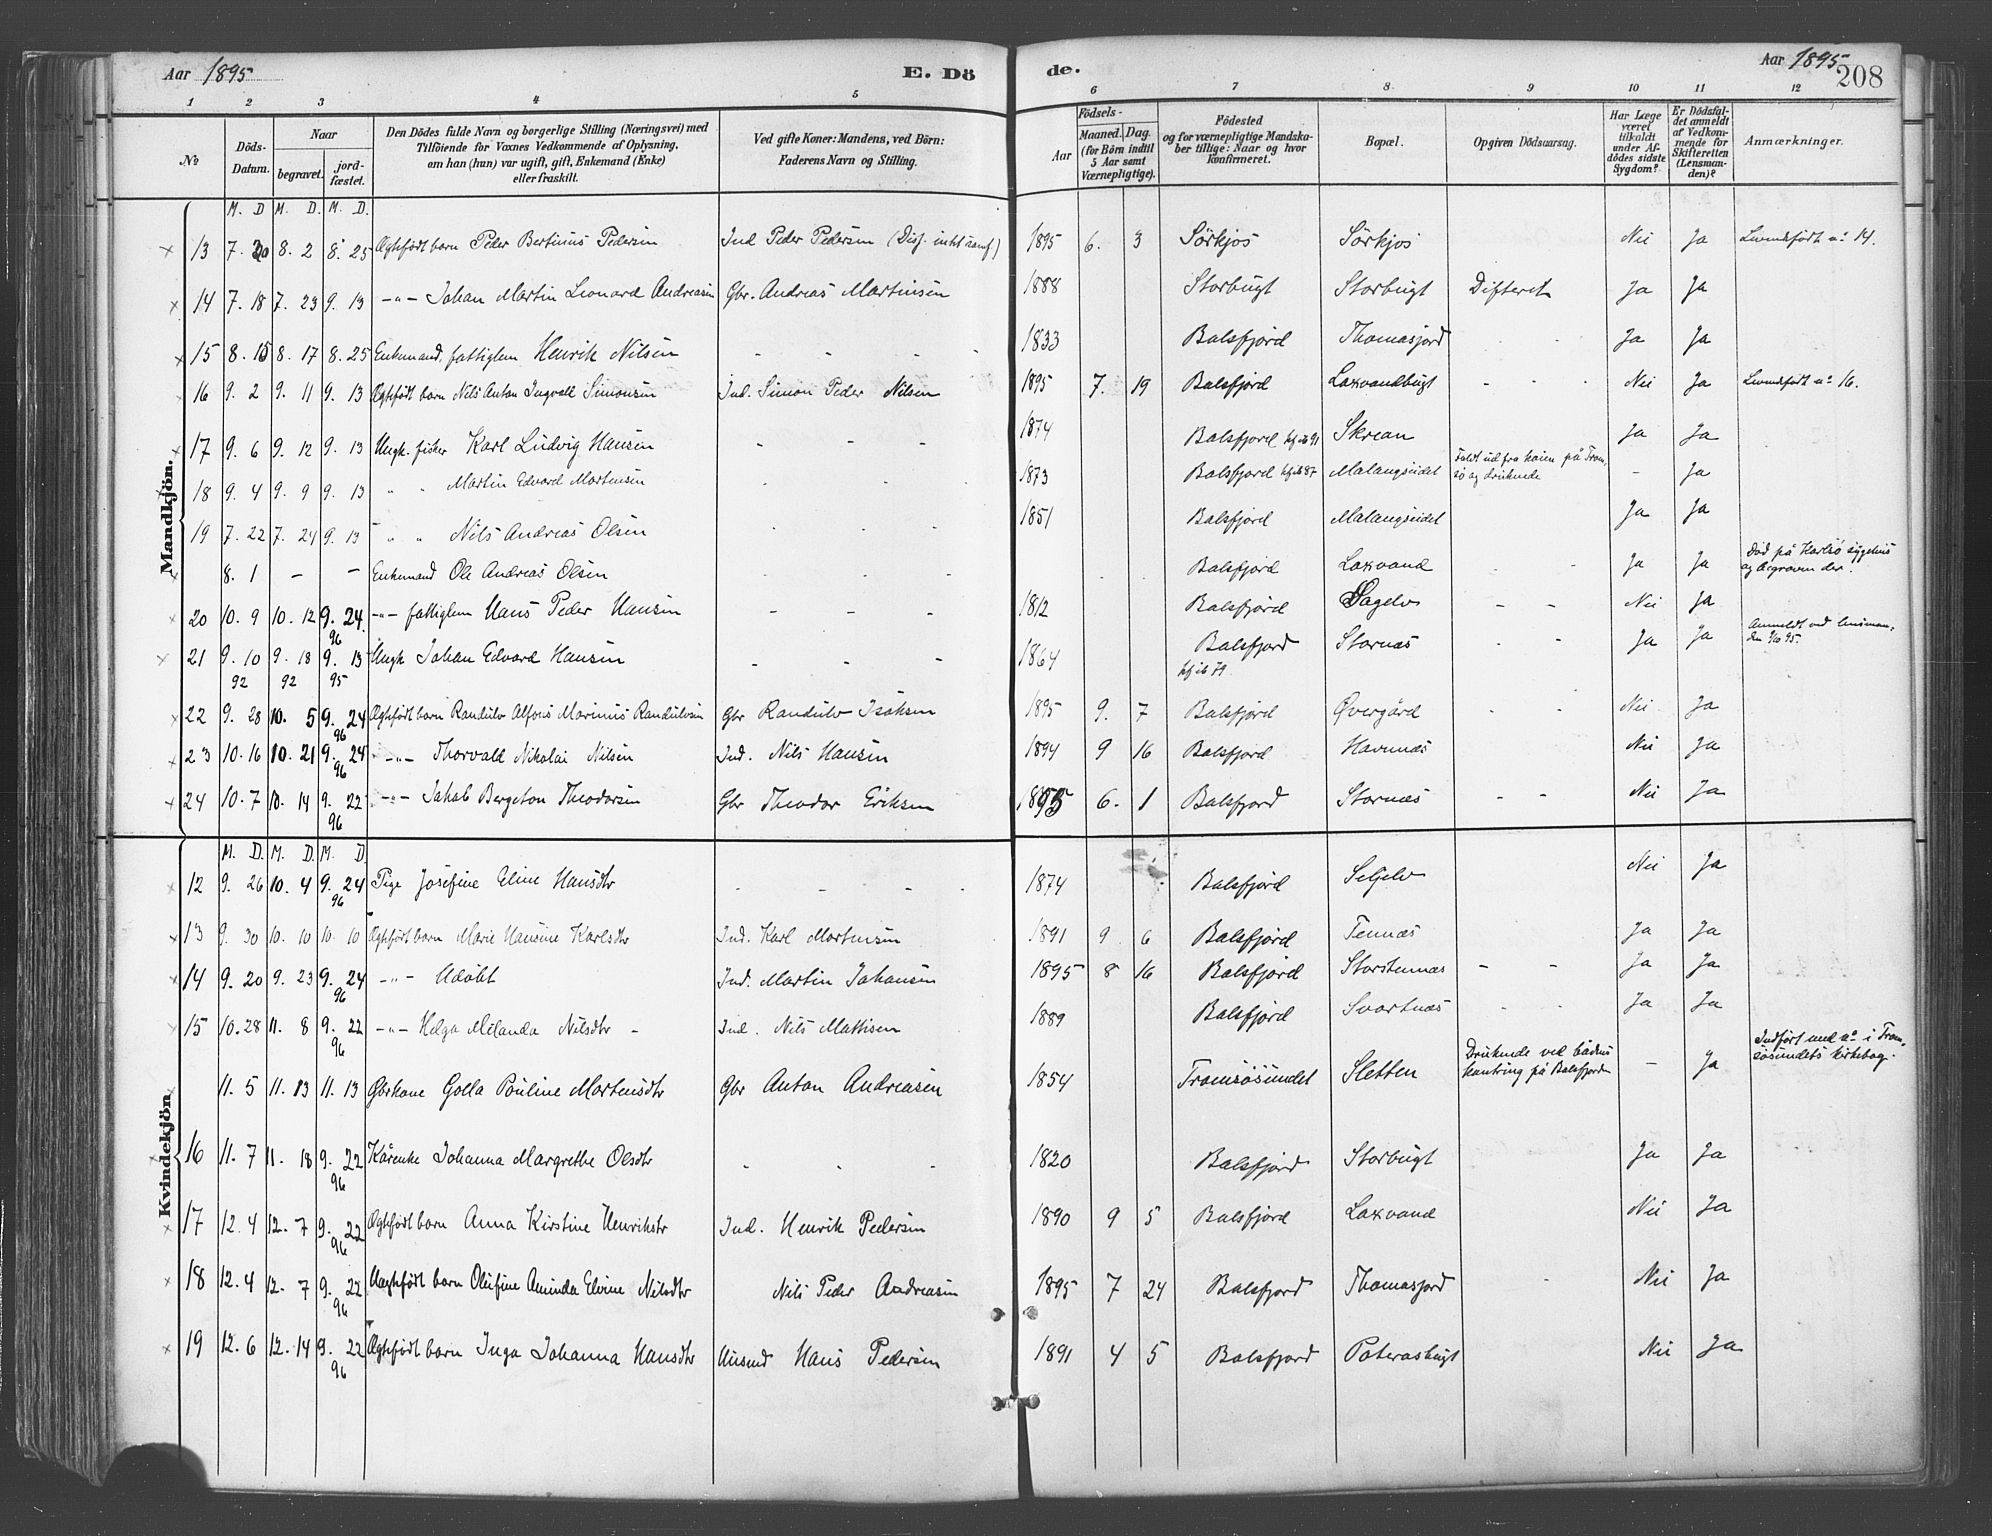 Aar 1895
E. Dö
de.
Aar 1895
208
1 2 3 4 5 6 7 8 9 10 11 12
No
Döds-Datum.
Naar
begravet.
jord-fæstet.
Den Dödes fulde Navn og borgerlige Stilling (Næringsvei) med
Tilföiende for Voxnes Vedkommende af Oplysning,
om han (hun) var ugift, gift, Enkemand (Enke)
eller fraskilt.
Ved gifte Koner: Mandens, ved Börn:
Faderens Navn og Stilling.
Födsels-
Aar
Maaned. Dag.
(for Börn indtil
5 Aar samt
Værnepligtige).
Födested
og for værnepligtige Mandska-
ber tillige: Naar og hvor
konfirmeret.
Bopæl.
Opgiven Dödsaarsag.
Har Læge
været
tilkaldt
under Af-
dödes sidste
Sygdom?
Er Dödsfal-
det anmeldt
af Vedkom-
mende for
Skifteretten
(Lensman-
den)?
Anmærkninger.
Mandkjön.
M. D. M. D. M. D.
13 7. 20 8. 2 8. 25 Ægtefödt barn Peder Bertinus Pedersen Ind Peder Pedersen 1895 6. 3 Sörkjos Sörkjos Nei Ja Levendefödt no 14.
14 7. 18 7. 23 9. 13 -"- Johan Martin Leonard Andreasen Gbr. Andreas Martinsen 1888 Storbugt Storbugt Difterit Ja Ja
15 8. 15 8. 17 8. 25 Enkemand, fattiglem Henrik Nilsen 1833 Balsfjord Thomasjord Ja Ja
16 9. 2 9. 11 9. 13 Ægtefödt barn Nils Anton Ingvald Simonsen Ind. Simon Peder Nilsen 1895 7. 19 Balsfjord Laxvandbugt Nei Ja Levendefödt no 16.
17 9. 6 9. 12 9. 13 Ungk. fisker Karl Ludvig Hansen 1874 Balsfjord kf. ib 91 Skrean Ja Ja
18 9. 4 9. 9 9. 13 " " Martin Edvard Mortensen 1873 Balsfjord kf ib 87 Malangseidet Faldt ud fra kaien på Trom-
sö og druknede - Ja
19 7. 22 7. 24 9. 13 " " Nils Andreas Olsen 1851 Balsfjord Malangseidet Ja Ja
8. 1 - - Enkemand Ole Andreas Olsen Balsfjord Laxvand Ja Ja Död på Karlsö sygehus
og begraven der.
20 10. 9 10. 12 9. 24 96 -"- fattiglem Hans Peder Hansen 1812 Balsfjord Sagelv Nei Ja
21 9. 10 92 9. 18 92 9. 13 95 Ungk Johan Edvard Hansen 1864 Balsfjord kf ib 79 Stornæs Ja Ja Anmeldt ved lensman-
den
22 9. 28 10. 5 9. 24 96 Ægtefödt barn Randulv Alfons Marinus Randulvsen Gbr Randulv Isaksen 1895 9. 7 Balsfjord Övergård Nei Ja
23 10. 16 10. 21 9. 24 96 -"- Thorvald Nikolai Nilsen Ind. Nils Hansen 1894 9 16 Balsfjord Havnnæs Nei Ja
24 10. 7 10. 14 9. 22 96 -"- Jakob Bergeton Theodorsen Gbr Theodor Eriksen 1895 6. 1 Balsfjord Stornæs Nei Ja
Kvindekjön
M. D. M. D. M. D.
12 9. 26 10. 4 9. 24 96 Pige Josefine Eline Hansdtr 1874 Balsfjord Seljelv Nei Ja
13 9. 30 10. 10 10. 10 Ægtefödt barn Marie Hansine Karlsdtr Ind. Karl Mortensen 1891 9 6 Balsfjord Tennæs Ja Ja
14 9. 20 9. 23 9. 24 96 -"- Udöbt Ind. Martin Johansen 1895 8 16 Balsfjord Storstennæs Ja Ja
15 10. 28 11. 8 9. 22 96 -"- Helga Milanda Nilsdtr Ind. Nils Mathisen 1889 Balsfjord Svartnæs Ja Ja
11. 5 11. 13 11. 13 Gbrkone Golla Pouline Mortensdtr Gbr Anton Andreasen 1854 Tromsösundet Sletten Druknede ved bådens
kantring på Balsfjorden - Ja Indfört med no i Trom-
sösundets kirkebog.
16 11. 7 11. 18 9. 22 96 Kårenke Johanna Margrethe Olsdtr 1820 Balsfjord Storbugt Ja Ja
17 12. 4 12. 7 9. 22 96 Ægtefödt barn Anna Kirstine Henrikstr Ind. Henrik Pedersen 1890 9 5 Balsfjord Laxvand Nei Ja
18 12. 4 12. 7 9. 22 96 Uægtefödt barn Olufine Aminda Elvine Nilsdtr Nils Peder Andreasen 1895 7 24 Balsfjord Thomasjord Nei Ja
19 12. 6 12. 14 9. 22 96 Ægtefödt barn Inga Johanna Hansdtr Husmd Hans Pedersen 1891 4 5 Balsfjord Paterasbugt Nei Ja